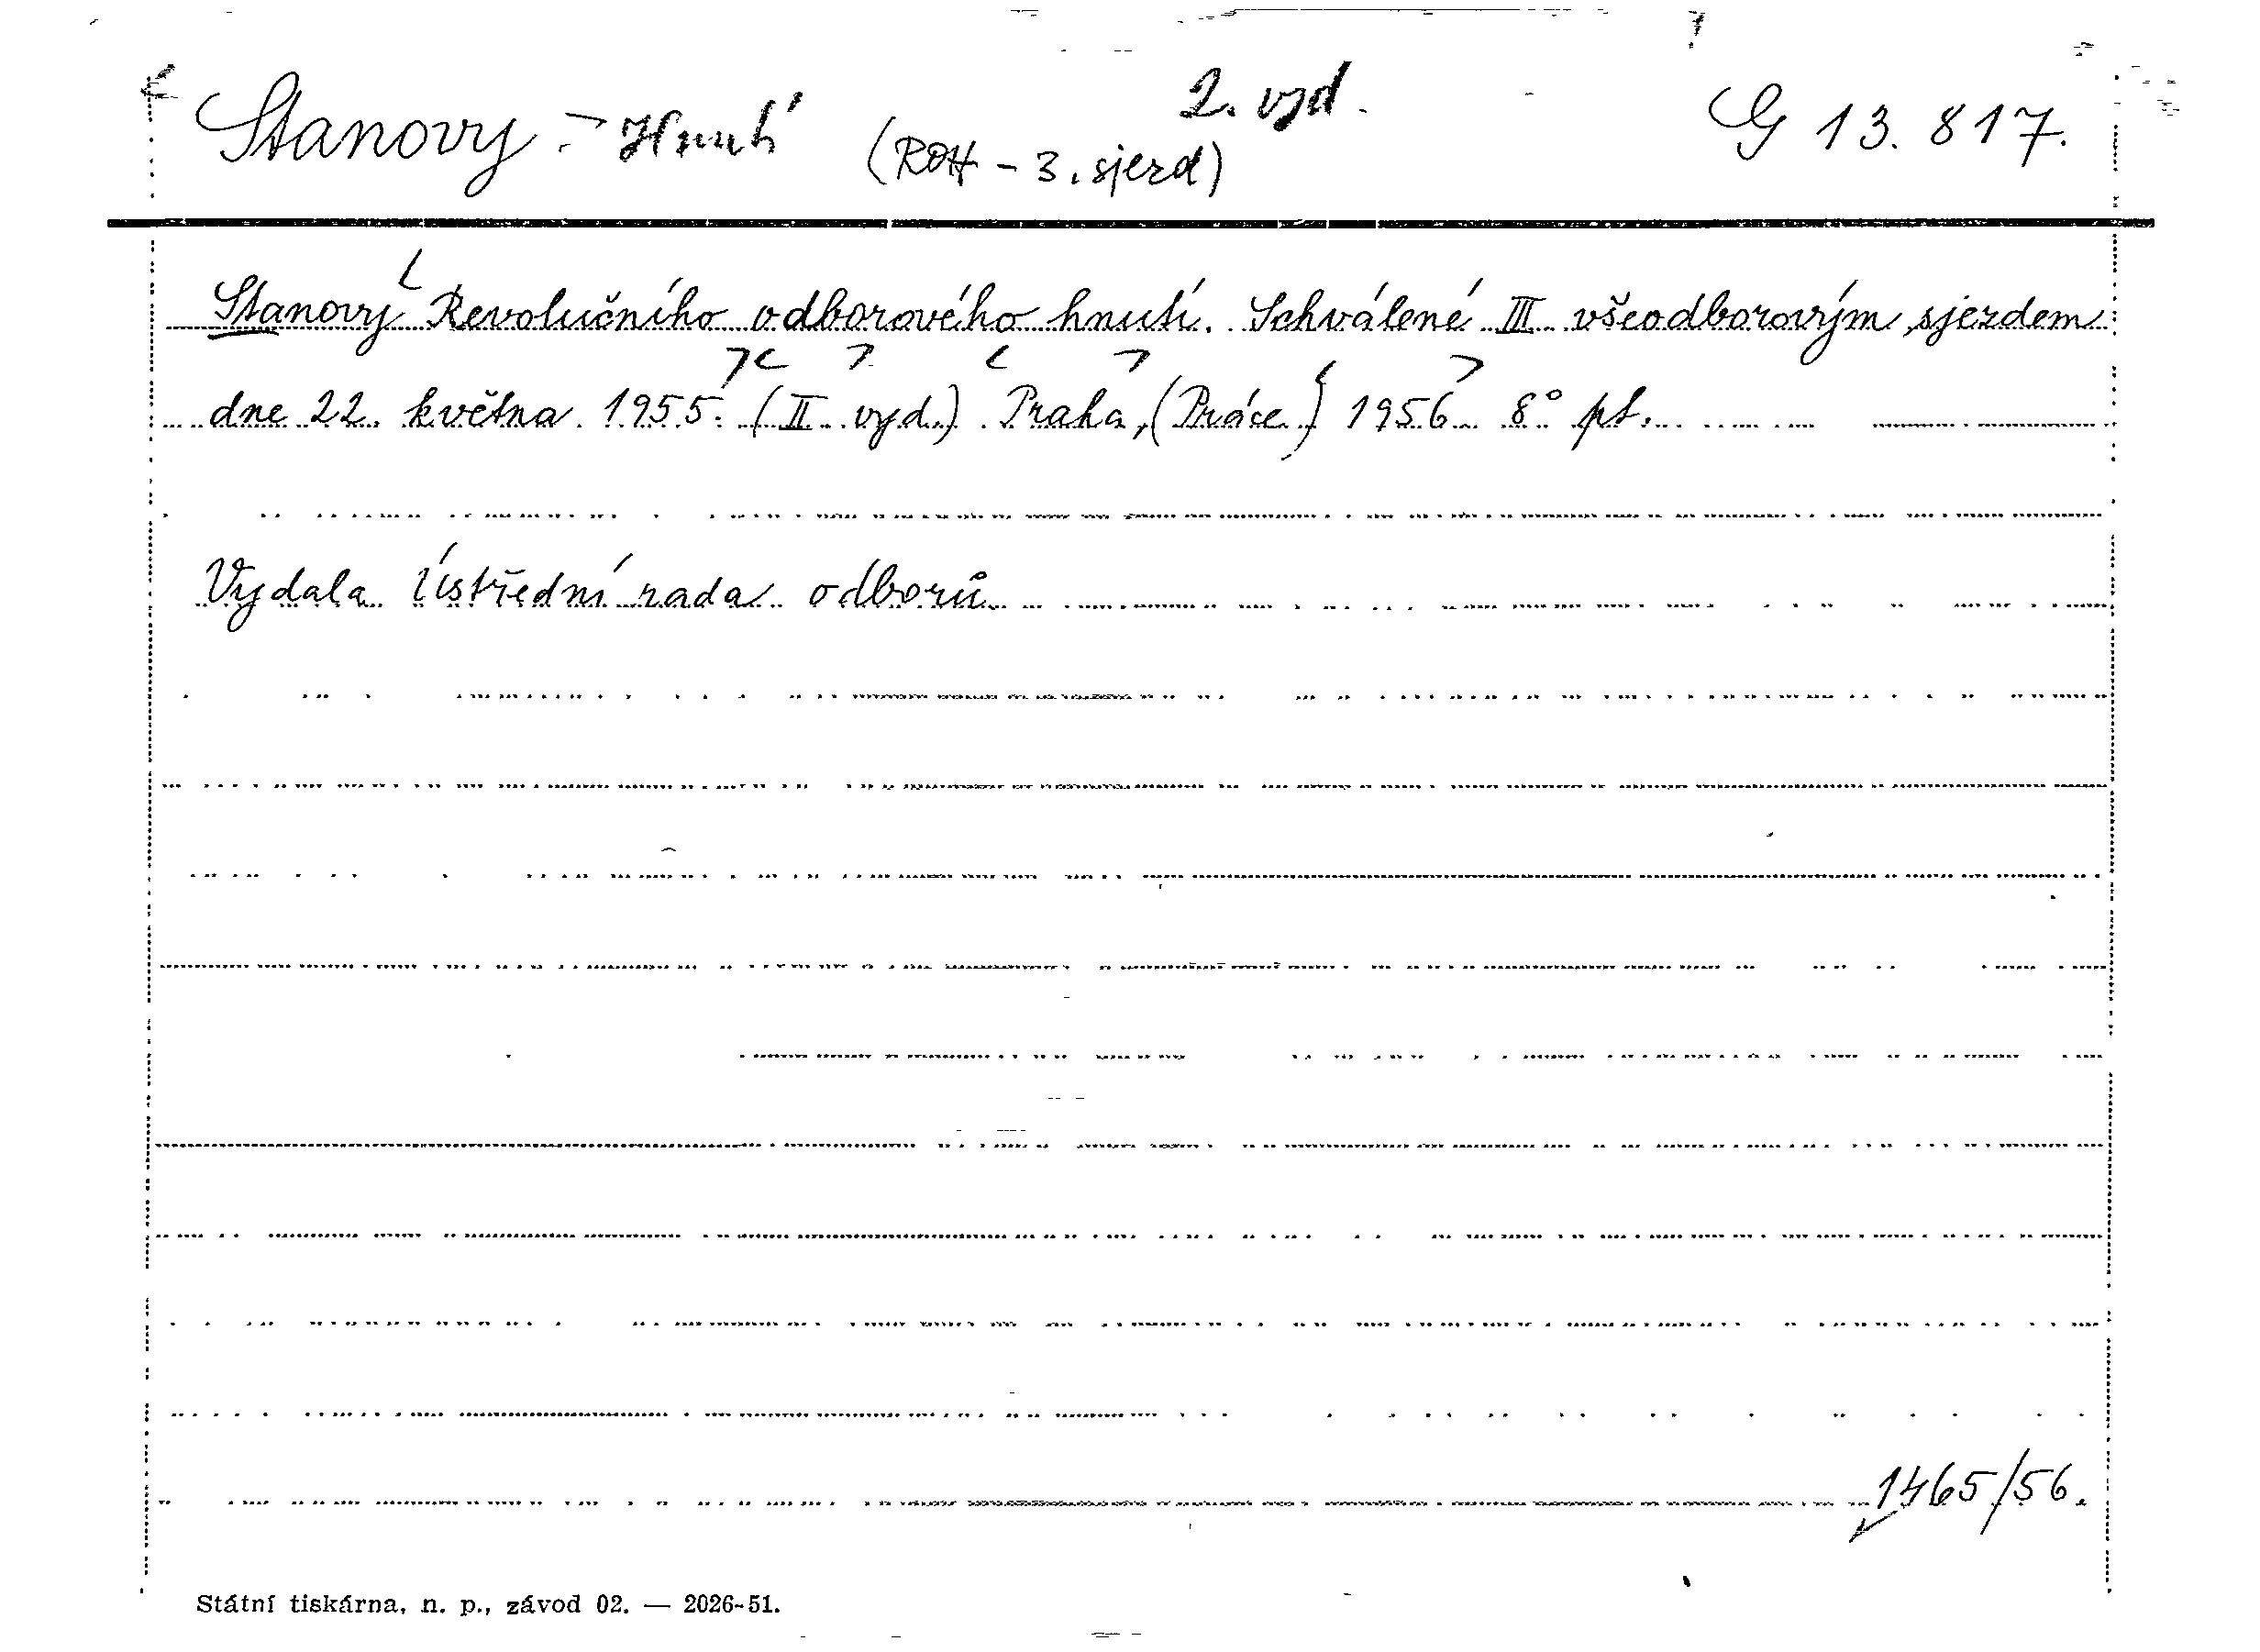 Stanovy - Hnutí (ROH - 3. sjezd) 2. vyd. G 13.817.
Stanovy Revolučního odborového hnutí. Schválené III všeodborovým sjezdem
dne 22. května 1955. (II vyd.) Praha, (Práce) 1956 8° pt.
Vydala Ústřední rada odborů
1465/56.
Státní tiskárna, n. p., závod 02. — 2026-51.